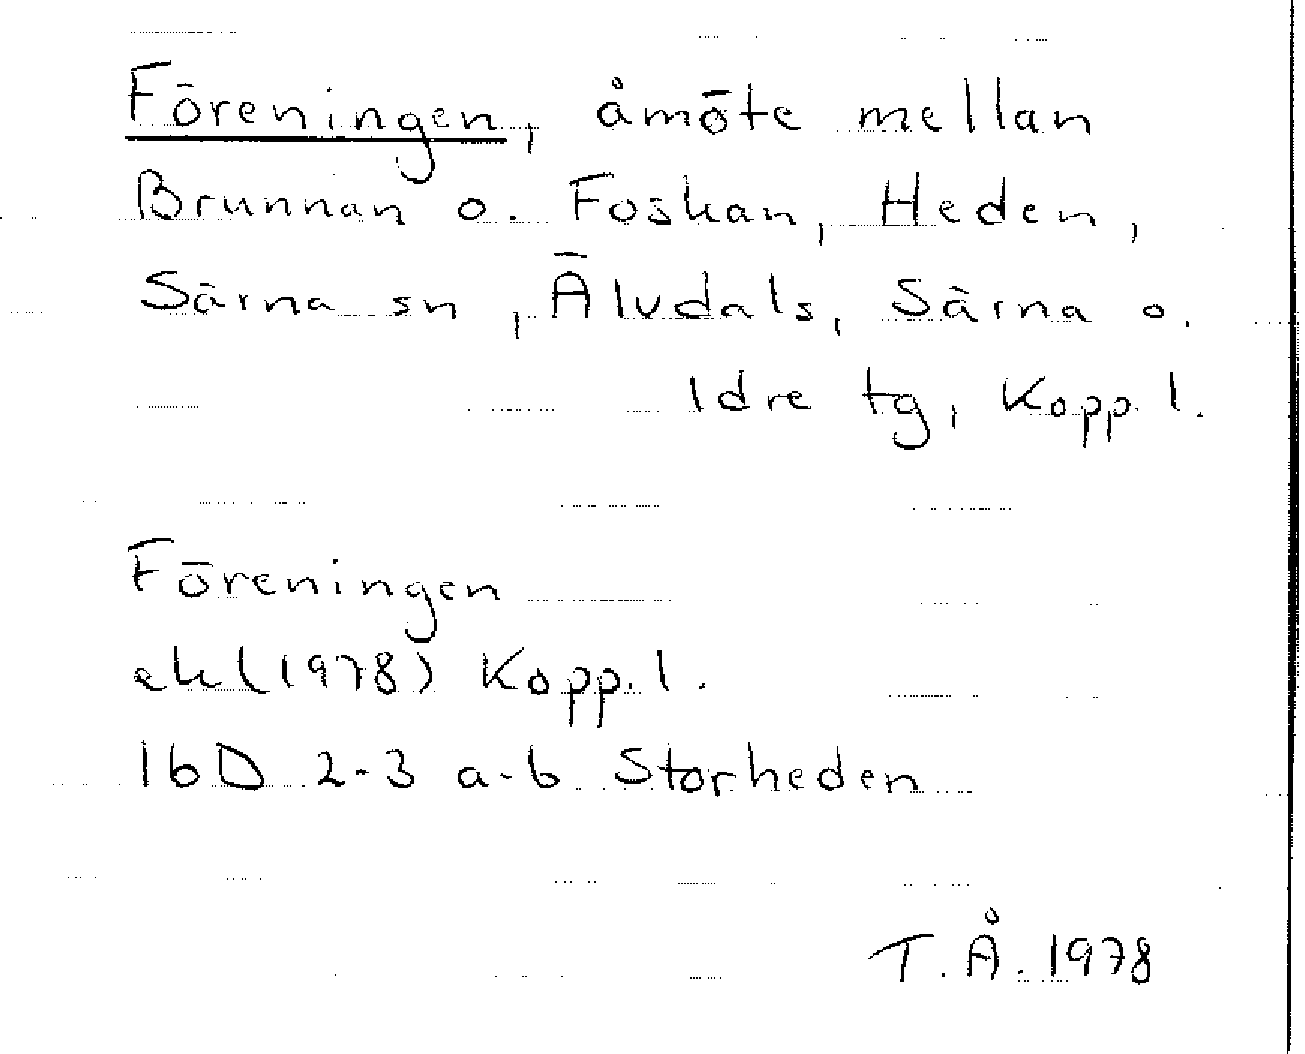 Föreningen, åmöte mellan
Brunnan o. Foskan, Heden,
Särna sn, Älvdals, Särna o.
Idre tg, Kopp. l.
Föreningen
ek (1978) Kopp. l.
16D 2-3 a-b Storheden
T. Å. 1978